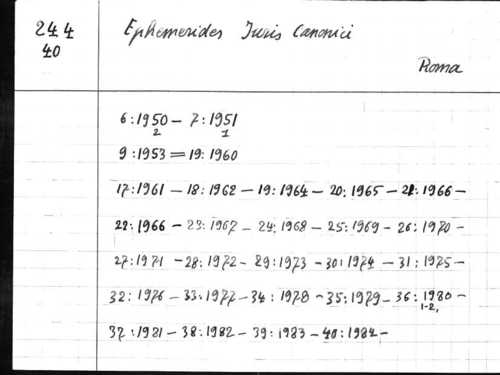 244 Ephemerides Iuris Canonici
40
Roma
6:1950 – 7:1951
2 1
9:1953 = 19:1960
17:1961 – 18:1962 – 19:1964 – 20:1965 – 21:1966 –
22:1966 – 23:1967 – 24:1968 – 25:1969 – 26:1970 –
27:1971 – 28:1972 – 29:1973 – 30:1974 – 31:1975 –
32:1976 – 33:1977 – 34:1978 – 35:1979 – 36:1980 –
1-2,
37:1981 – 38:1982 – 39:1983 – 40:1984 –